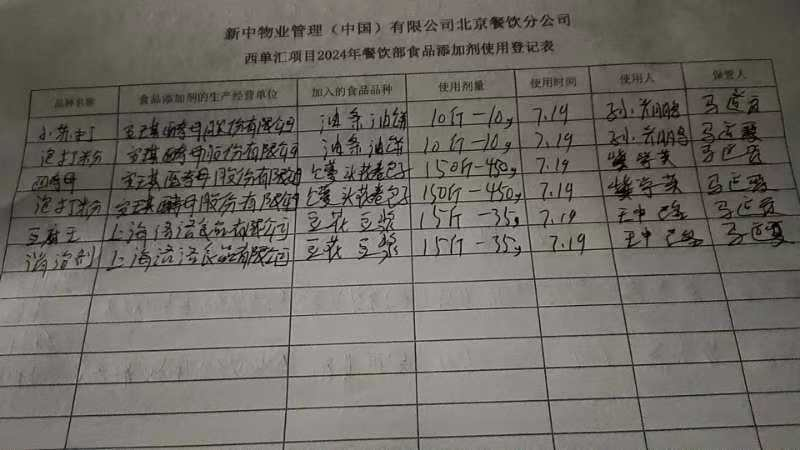 新中物业管理（中国）有限公司北京餐饮分公司
西单汇项目2024年餐饮部食品添加剂使用登记表
品种名称 食品添加剂的生产经营单位 加入的食品品种 使用剂量 使用时间 使用人 保管人
小苏打 安琪酵母股份有限公司 油条油饼 10斤-10g 7.19 孙 马
泡打粉 安琪酵母股份有限公司 油条油饼 10斤-10g 7.19 孙 马
酵母 安琪酵母股份有限公司 馒头花卷包子 150斤-450g 7.19 马
泡打粉 安琪酵母股份有限公司 馒头花卷包子 150斤-450g 7.19 马
豆腐王 上海 食品有限公司 豆花豆浆 15斤-35g 7.19 王中 马
消泡剂 上海 食品有限公司 豆花豆浆 15斤-35g 7.19 王中 马